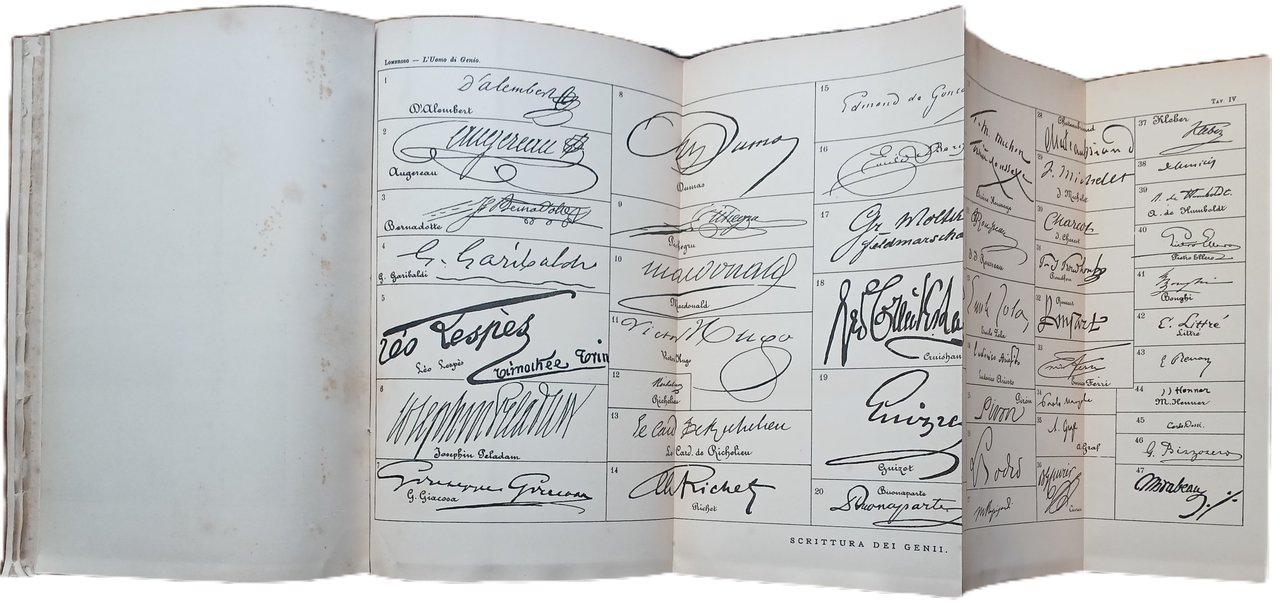 Lombroso — L'Uomo di Genio.
Tav. IV
1
D'alembert
D'Alembert
2
augereau
Augereau
3
J Bernadotte
Bernadotte
4
G. Garibaldi
G. Garibaldi
5
Léo Lespès
Léo Lespès
Timothée Trim
6
Josephin Peladan
Josephin Peladam
7
Giuseppe Giacosa
G. Giacosa
8
Alex Dumas
Dumas
9
Pichegru
10
macdonald
Macdonald
11
Victor Hugo
Victor Hugo
12
Richelieu
Richelieu
13
le Card de Richelieu
Le Card. de Richelieu
14
Ch Richet
Richet
15
Edmond de Gonco
16
17
Gr Moltke
Feldmarscha
18
Geo Cruiksha
Cruishan
19
Guizot
Guizot
20
Buonaparte
Buonaparte
Emile Zola
Emile Zola
Ludovico Ariosto
Giron
28
Chateaubriand
Chateaubriand
29
J. Michelet
J. Michelet
30
Charcot
J. Charcot
31
P-J Proudhon
Proudhon
32
33
Enrico Ferri
34
35
A. Graf
A. Graf
36
37 Kleber
Kleber
38
39
A. de Humboldt
A. de Humboldt
40
Pietro Ellero
Pietro Ellero
41
Bonghi
Bonghi
42
E. Littré
Littré
43
E Renan
44
JJ Henner
M. Henner
45
46
G. Pizzozero
47
Mirabeau
SCRITTURA DEI GENII.